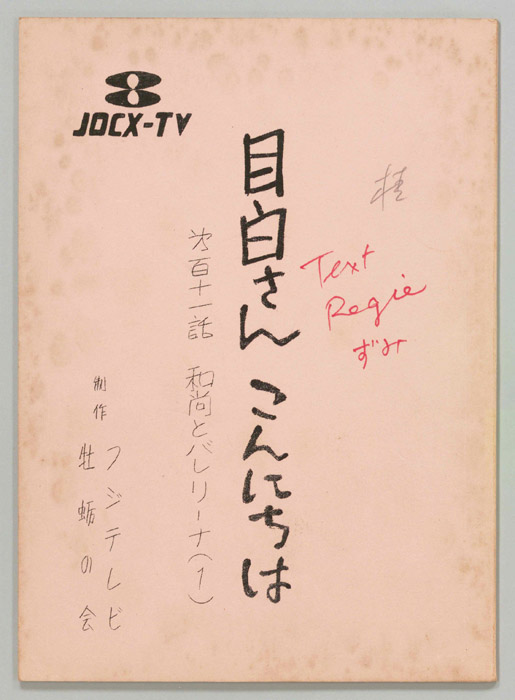 JOCX-TV
桂
Text
Regie
ずみ
目白さん こんにちは
第百十一話 和尚とバレリーナ(1)
制作 フジテレビ
牡蛎の会